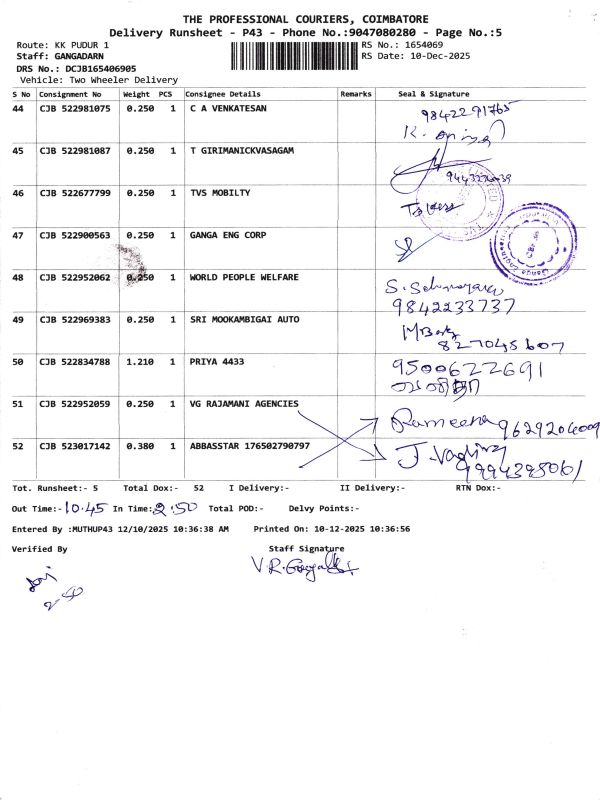 THE PROFESSIONAL COURIERS, COIMBATORE
Delivery Runsheet - P43 - Phone No.:9047080280 - Page No.:5
Route: KK PUDUR 1
RS No.: 1654069
Staff: GANGADARN
RS Date: 10-Dec-2025
DRS No.: DCJB165406905
Vehicle: Two Wheeler Delivery
S No Consignment No Weight PCS Consignee Details Remarks Seal & Signature
44 CJB 522981075 0.250 1 C A VENKATESAN
9842291765
45 CJB 522981087 0.250 1 T GIRIMANICKVASAGAM
46 CJB 522677799 0.250 1 TVS MOBILTY
47 CJB 522900563 0.250 1 GANGA ENG CORP
48 CJB 522952062 0.250 1 WORLD PEOPLE WELFARE
9842233737
49 CJB 522969383 0.250 1 SRI MOOKAMBIGAI AUTO
827045607
50 CJB 522834788 1.210 1 PRIYA 4433
9500622691
51 CJB 522952059 0.250 1 VG RAJAMANI AGENCIES
Rameena 9629204009
52 CJB 523017142 0.380 1 ABBASSTAR 176502790797
Tot. Runsheet:- 5 Total Dox:- 52 I Delivery:- II Delivery:- RTN Dox:-
Out Time:- 10.45 In Time:- 2.50 Total POD:- Delvy Points:-
Entered By :MUTHUP43 12/10/2025 10:36:38 AM Printed On: 10-12-2025 10:36:56
Verified By Staff Signature